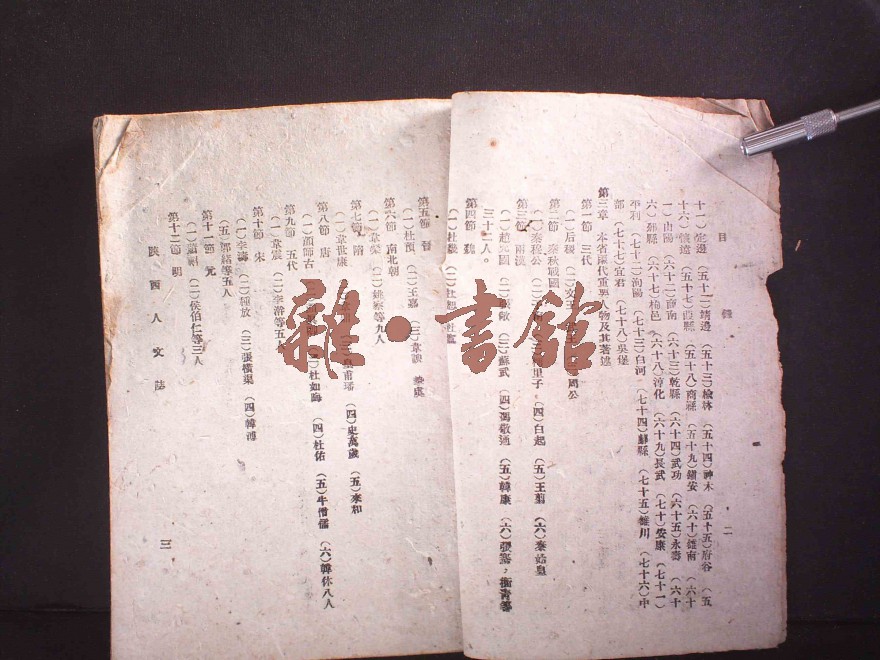 目錄
十一)定邊 (五十二)靖邊 (五十三)榆林 (五十四)神木 (五十五)府谷 (五
十六)懷遠 (五十七)葭縣 (五十八)商縣 (五十九)鎮安 (六十)雒南 (六十
一)山陽 (六十二)商南 (六十三)乾縣 (六十四)武功 (六十五)永壽 (六十
六)邠縣 (六十七)栒邑 (六十八)淳化 (六十九)長武 (七十)安康 (七十一)
平利 (七十二)洵陽 (七十三)白河 (七十四)鄜縣 (七十五)雒川 (七十六)中
部 (七十七)宜君 (七十八)吳堡
第三章 本省歷代重要人物及其著述
第一節 三代
(一)后稷 (二)文王 周公
第二節 春秋戰國
(一)秦穆公 里子 (四)白起 (五)王翦 (六)秦始皇
第三節 兩漢
(三)蘇武 (四)馮敬通 (五)韓康 (六)張騫,衛青等
三十人。
第四節 魏
(一)杜畿
二
第五節 晉
(一)杜預 (二)王嘉 (三)韋謏
第六節 南北朝
(一)韋叡 (二)姚察等九人
第七節 隋
(一)韋世康 皇甫璠 (四)史萬歲 (五)來和
第八節 唐
(一)顏師古 杜如晦 (四)杜佑 (五)牛僧儒 (六)韓休八人
第九節 五代
(一)韋震 (二)李濬等五人
第十節 宋
(一)李濤 (二)種放 (三)張橫渠 (四)韓溥
(五)郭緒等五人
第十一節 元
(二)侯伯仁等三人
第十二節 明
陝西人文誌
三
雜·書館